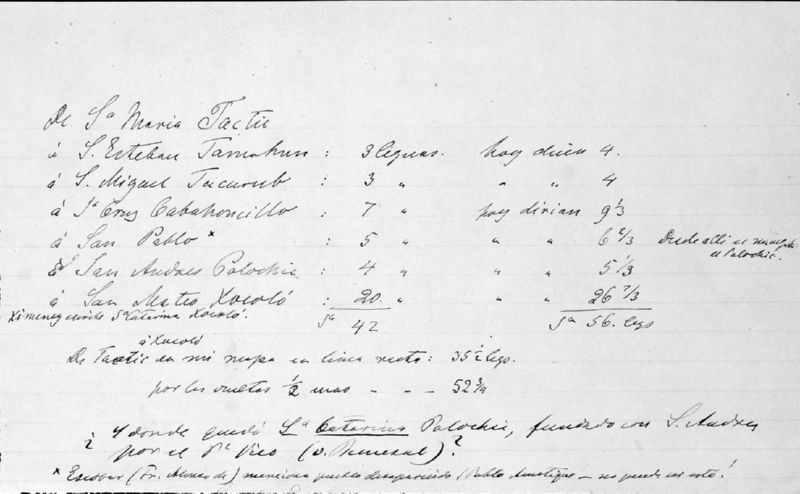 De Sª Maria Tactic
á S. Esteban Tamahun : 3 leguas. hoy dicen 4.
á S. Miguel Tucurub : 3 " " " 4
á Sª Cruz Cabahoncillo : 7 " hoy dirian 9 1/3
á San Pablo * : 5 " " " 6 2/3 Desde alli se navega el Polochic.
á San Andres Polochic : 4 " " " 5 1/3
á San Mateo Xocoló : 20 " " " 26 2/3
Sª Caterina Xocoló. Sª 42 Sª 56. legs
á Xocoló
De Tactic en mi mapa en linea recta : 35 1/2 legs.
por las vueltas 1/2 mas - - - 52 3/4
¿ Y donde quedó Sª Catarina Polochic, fundado con S. Andres
por el Pe Vico (v. Remesal) ?
* Escobar (Fr. Alonso de) menciona pueblo desaparecido (Pablo - no puede ser esto!